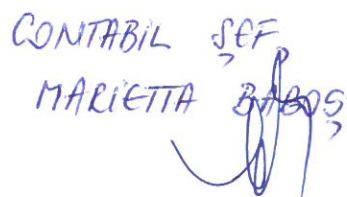 CONTABIL ȘEF
MARIETTA BABOȘ